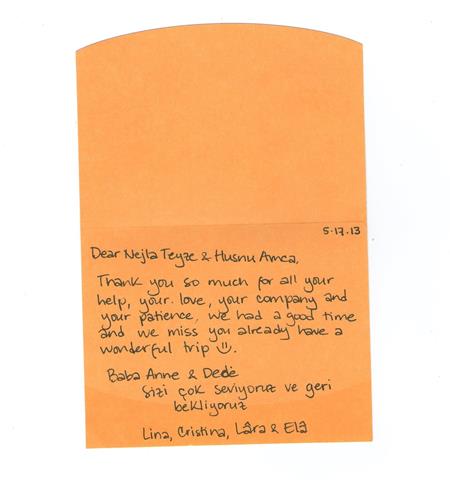 5.17.13
Dear Nejla Teyze & Husnu Amca,
Thank you so much for all your
help, your love, your company and
your patience. We had a good time
and we miss you already have a
wonderful trip ☺.
Baba Anne & Dede
Sizi çok seviyoruz ve geri
bekliyoruz
Lina, Cristina, Lâra & Elâ